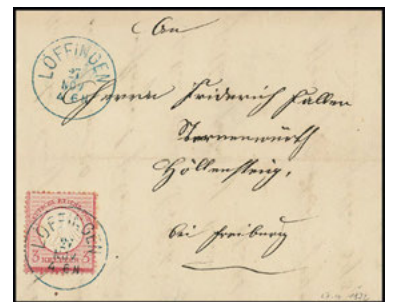 An
LÖFFINGEN
27
NOV
4 E N
Herrn Friderich Faller
Sternenwürth
Höllensteig,
bei Freiburg
LÖFFINGEN
27
NOV
4 E N
3 3